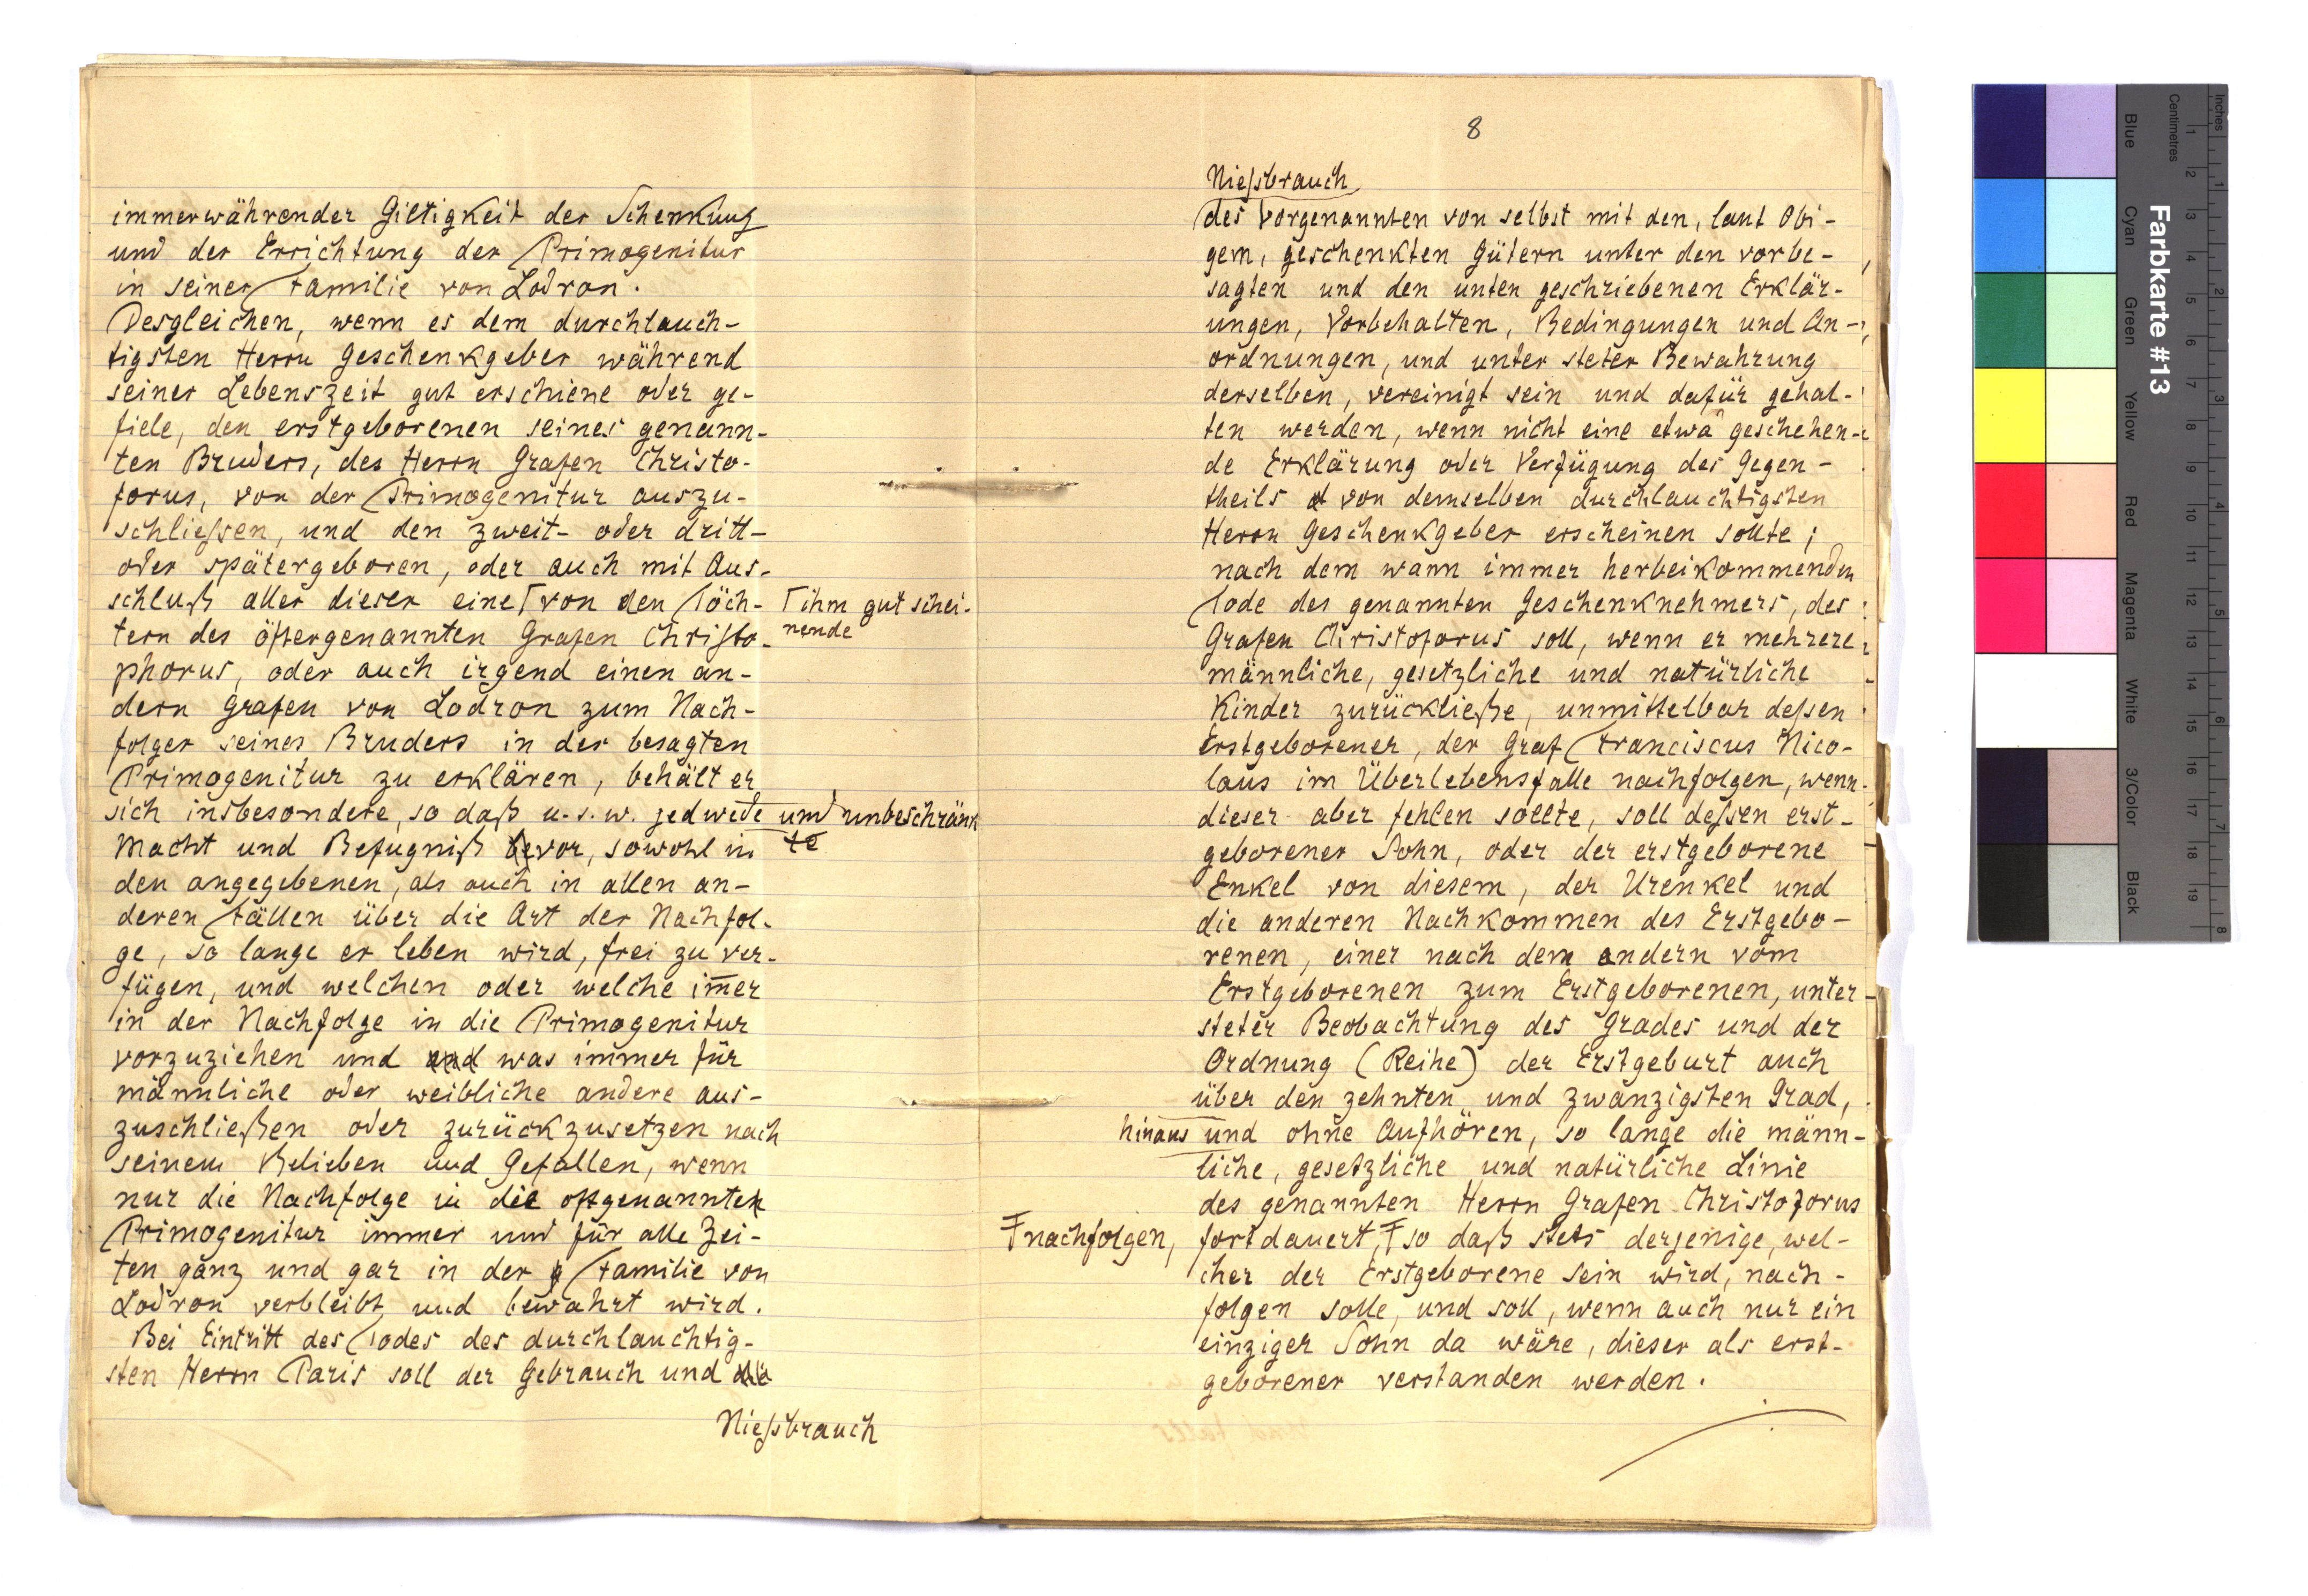 immerwährender Giltigkeit der Schenkung
und der Errichtung der Primogenitur
in seiner Familie von Lodron.
Desgleichen, wenn es dem durchlauch-
tigsten Herrn Geschenkgeber während
seiner Lebenszeit gut erschiene oder ge-
fiele, den erstgeborenen seines genann-
ten Bruders, des Herrn Grafen Christo-
forus, von der Primogenitur auszu-
schließen, und den zweit- oder dritt-
oder spätergeboren, oder auch mit Aus-
schluß aller dieser eine Γ von den Töch-
Γ ihm gut schei-
nende
tern des öftergenannten Grafen Christo-
phorus, oder auch irgend einen an-
dern Grafen von Lodron zum Nach-
folger seines Bruders in der besagten
Primogenitur zu erklären, behält er
sich insbesondere, so daß u. s. w. jedwede und unbeschränk
te
Macht und Befugniß bevor, sowohl in
den angegebenen, als auch in allen an-
deren Fällen über die Art der Nachfol-
ge, so lange er leben wird, frei zu ver-
fügen, und welchen oder welche im̄er
in der Nachfolge in die Primogenitur
vorzuziehen und und was immer für
männliche oder weibliche andere aus-
zuschließen oder zurückzusetzen nach
seinem Belieben und Gefallen, wenn
nur die Nachfolge in die oftgenannten
Primogenitur immer und für alle Zei-
ten ganz und gar in der g Familie von
Lodron verbleibt und bewahrt wird.
Bei Eintritt des Todes des durchlauchtig-
sten Herrn Paris soll der Gebrauch und die
Nießbrauch
8
Nießbrauch
des Vorgenannten von selbst mit den, laut Obi-
gem, geschenkten Gütern unter den vorbe-
sagten und den unten geschriebenen Erklär-
ungen, Vorbehalten, Bedingungen und An-
ordnungen, und unter steter Bewahrung
derselben, vereinigt sein und dafür gehal-
ten werden, wenn nicht eine etwa geschehen-
de Erklärung oder Verfügung des Gegen-
theils d von demselben durchlauchtigsten
Herrn Geschenkgeber erscheinen sollte;
nach dem wann immer herbeikommenden
Tode des genannten Geschenknehmers, des
Grafen Christoforus soll, wenn er mehrere
männliche, gesetzliche und natürliche
Kinder zurückließe, unmittelbar deßen
Erstgeborener, der Graf Franciscus Nico-
laus im Überlebensfalle nachfolgen, wenn
dieser aber fehlen sollte, soll deßen erst-
geborener Sohn, oder der erstgeborene
Enkel von diesem, der Urenkel und
die anderen Nachkommen des Erstgebo-
renen, einer nach dem andern vom
Erstgeborenen zum Erstgeborenen, unter
steter Beobachtung des Grades und der
Ordnung (Reihe) der Erstgeburt auch
über den zehnten und zwanzigsten Grad,
hinaus und ohne Aufhören, so lange die männ-
liche, gesetzliche und natürliche Linie
des genannten Herrn Grafen Christoforus
F nachfolgen, fortdauert, F so daß stets derjenige, wel-
cher der Erstgeborene sein wird, nach-
folgen solle, und soll, wenn auch nur ein
einziger Sohn da wäre, dieser als erst-
geborener verstanden werden.
Farbkarte #13
Inches
1 2 3 4 5 6 7 8
Centimetres
1 2 3 4 5 6 7 8 9 10 11 12 13 14 15 16 17 18 19
Blue
Cyan
Green
Yellow
Red
Magenta
White
3/Color
Black